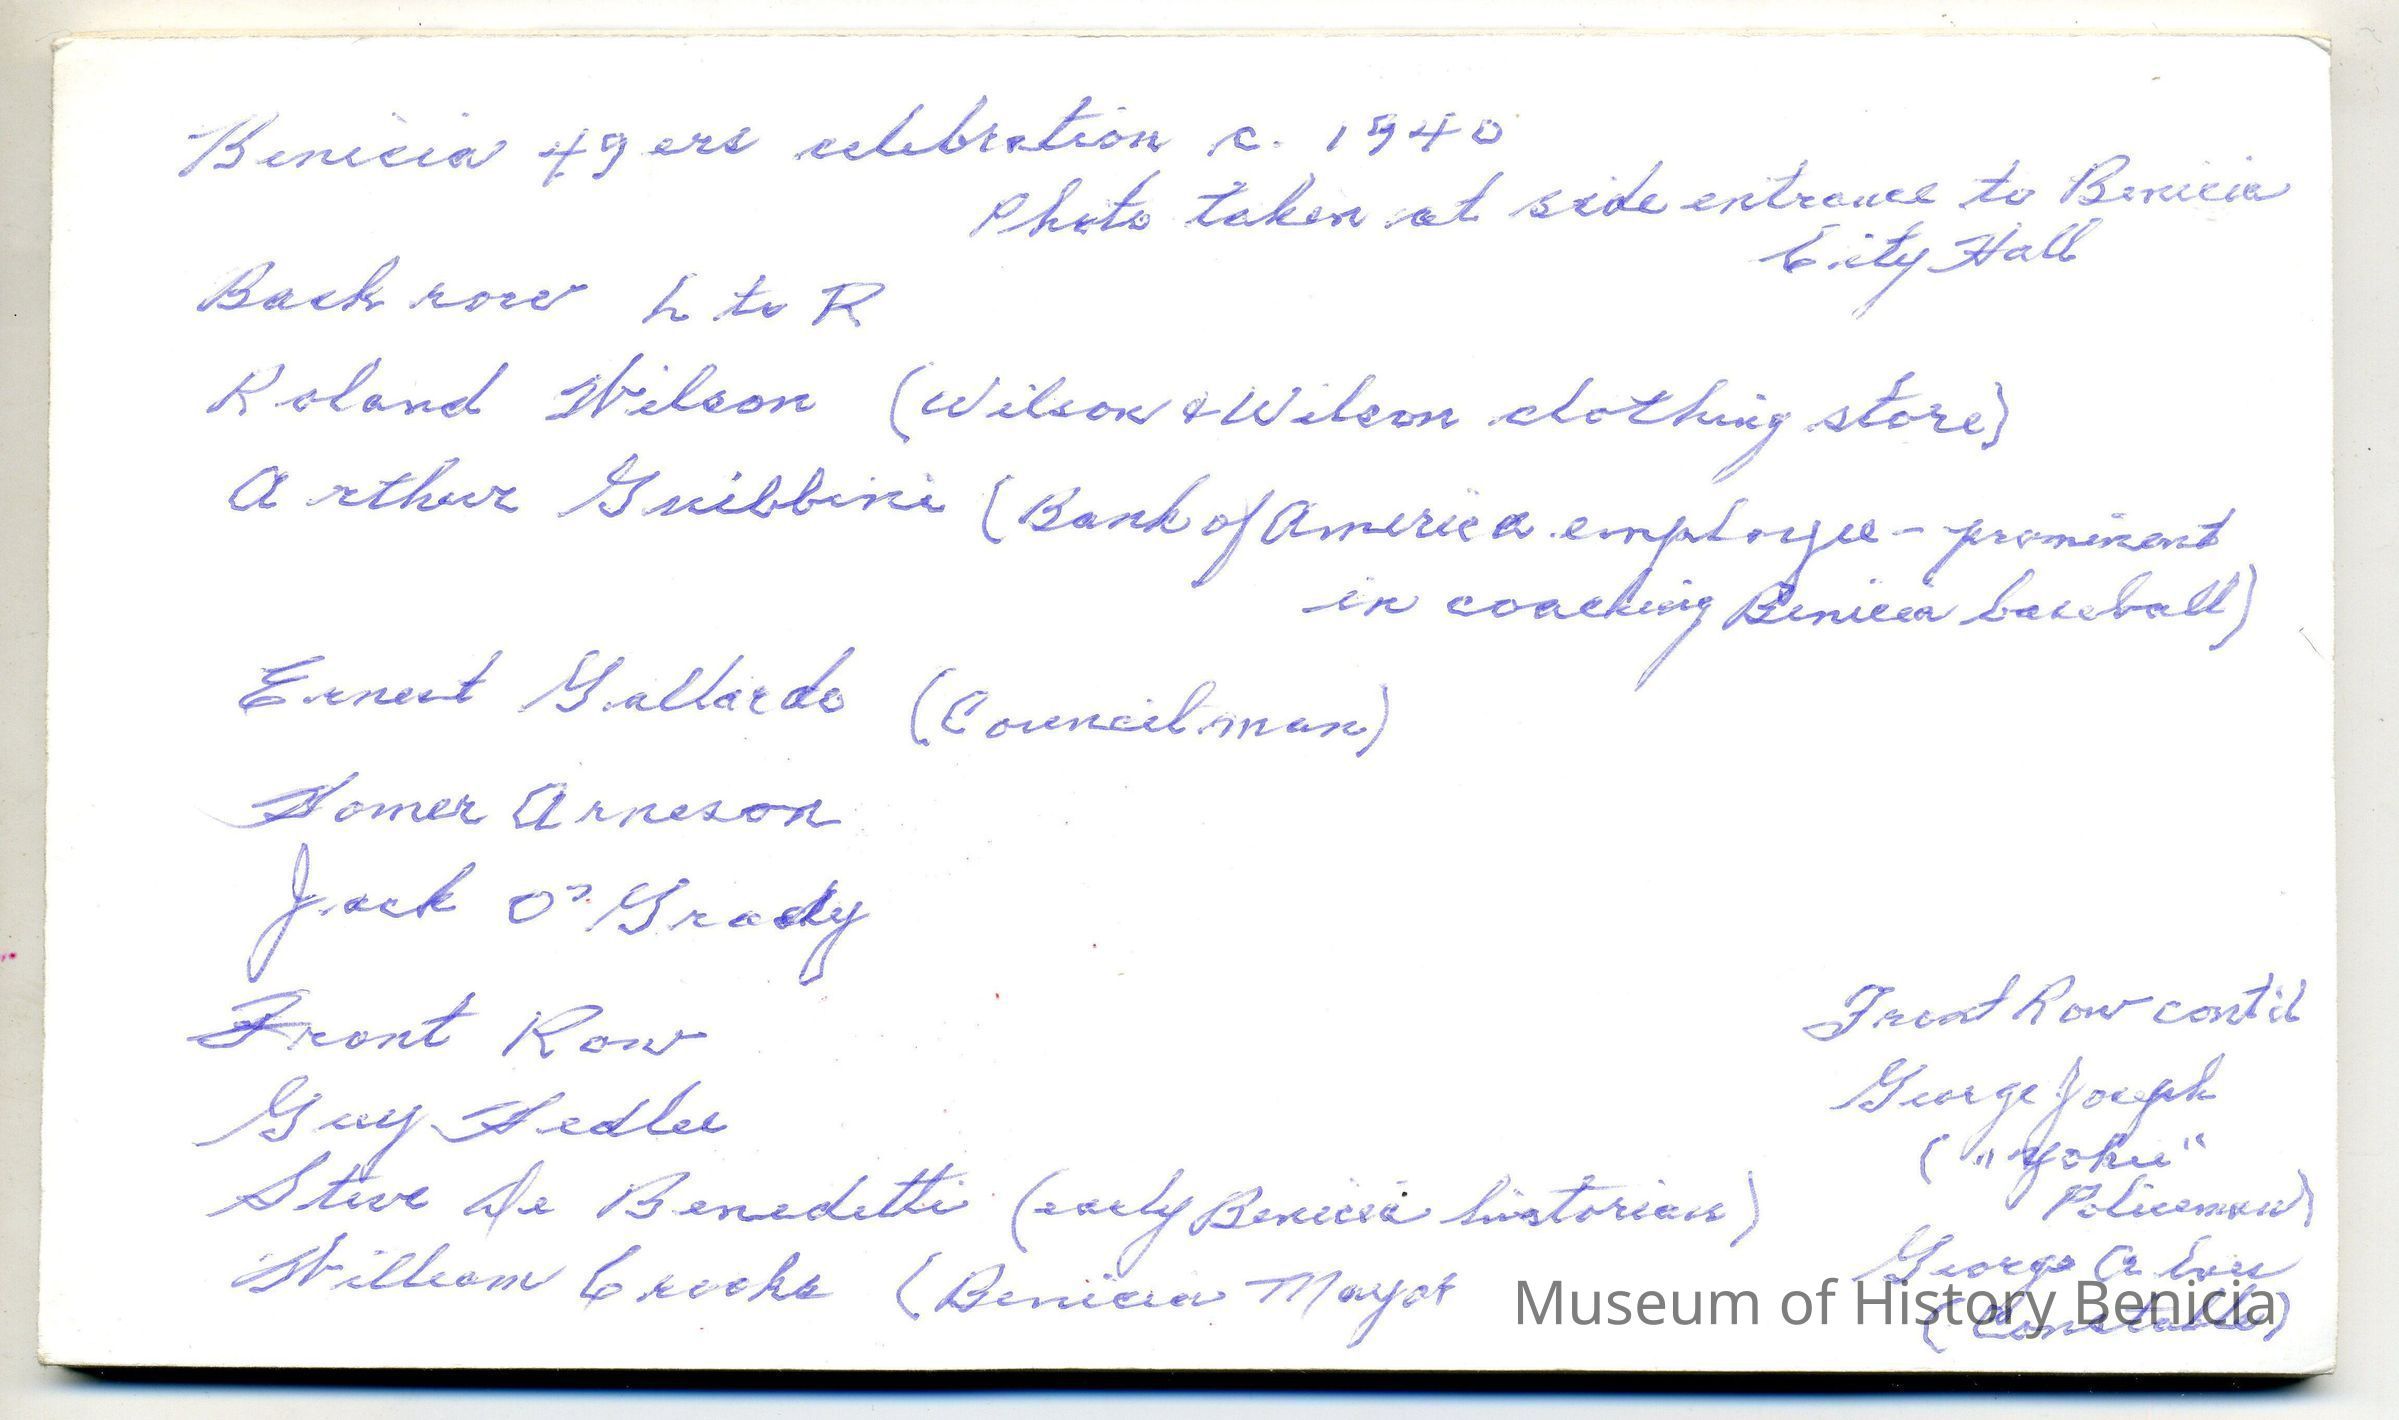 Benicia 49ers celebration c. 1940
Photo taken at side entrance to Benicia
City Hall
Back row L to R
Roland Wilson (Wilson & Wilson clothing store)
Arthur Gnibbini (Bank of America employee - prominent
in coaching Benicia baseball)
Ernest Gallardo (Councilman)
Homer Arneson
Jack O'Grady
Front Row
Guy
Steve De Benedetti (early Benicia historian)
William Crooks (Benicia Mayor
Front Row cont'd
George Joseph
(
Policeman)
George
(Constable)
Museum of History Benicia